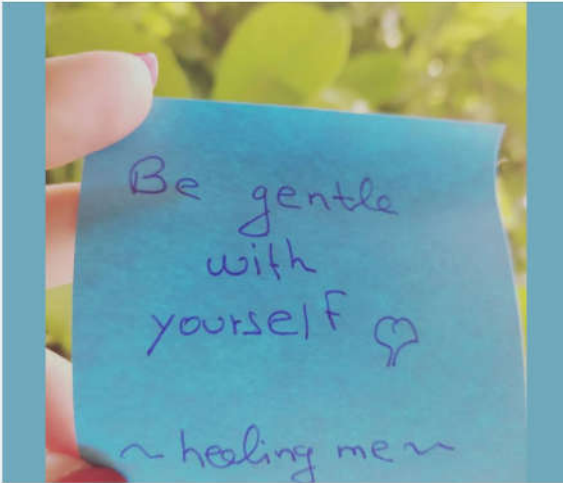 Be gentle
with
yourself
~ healing me ~